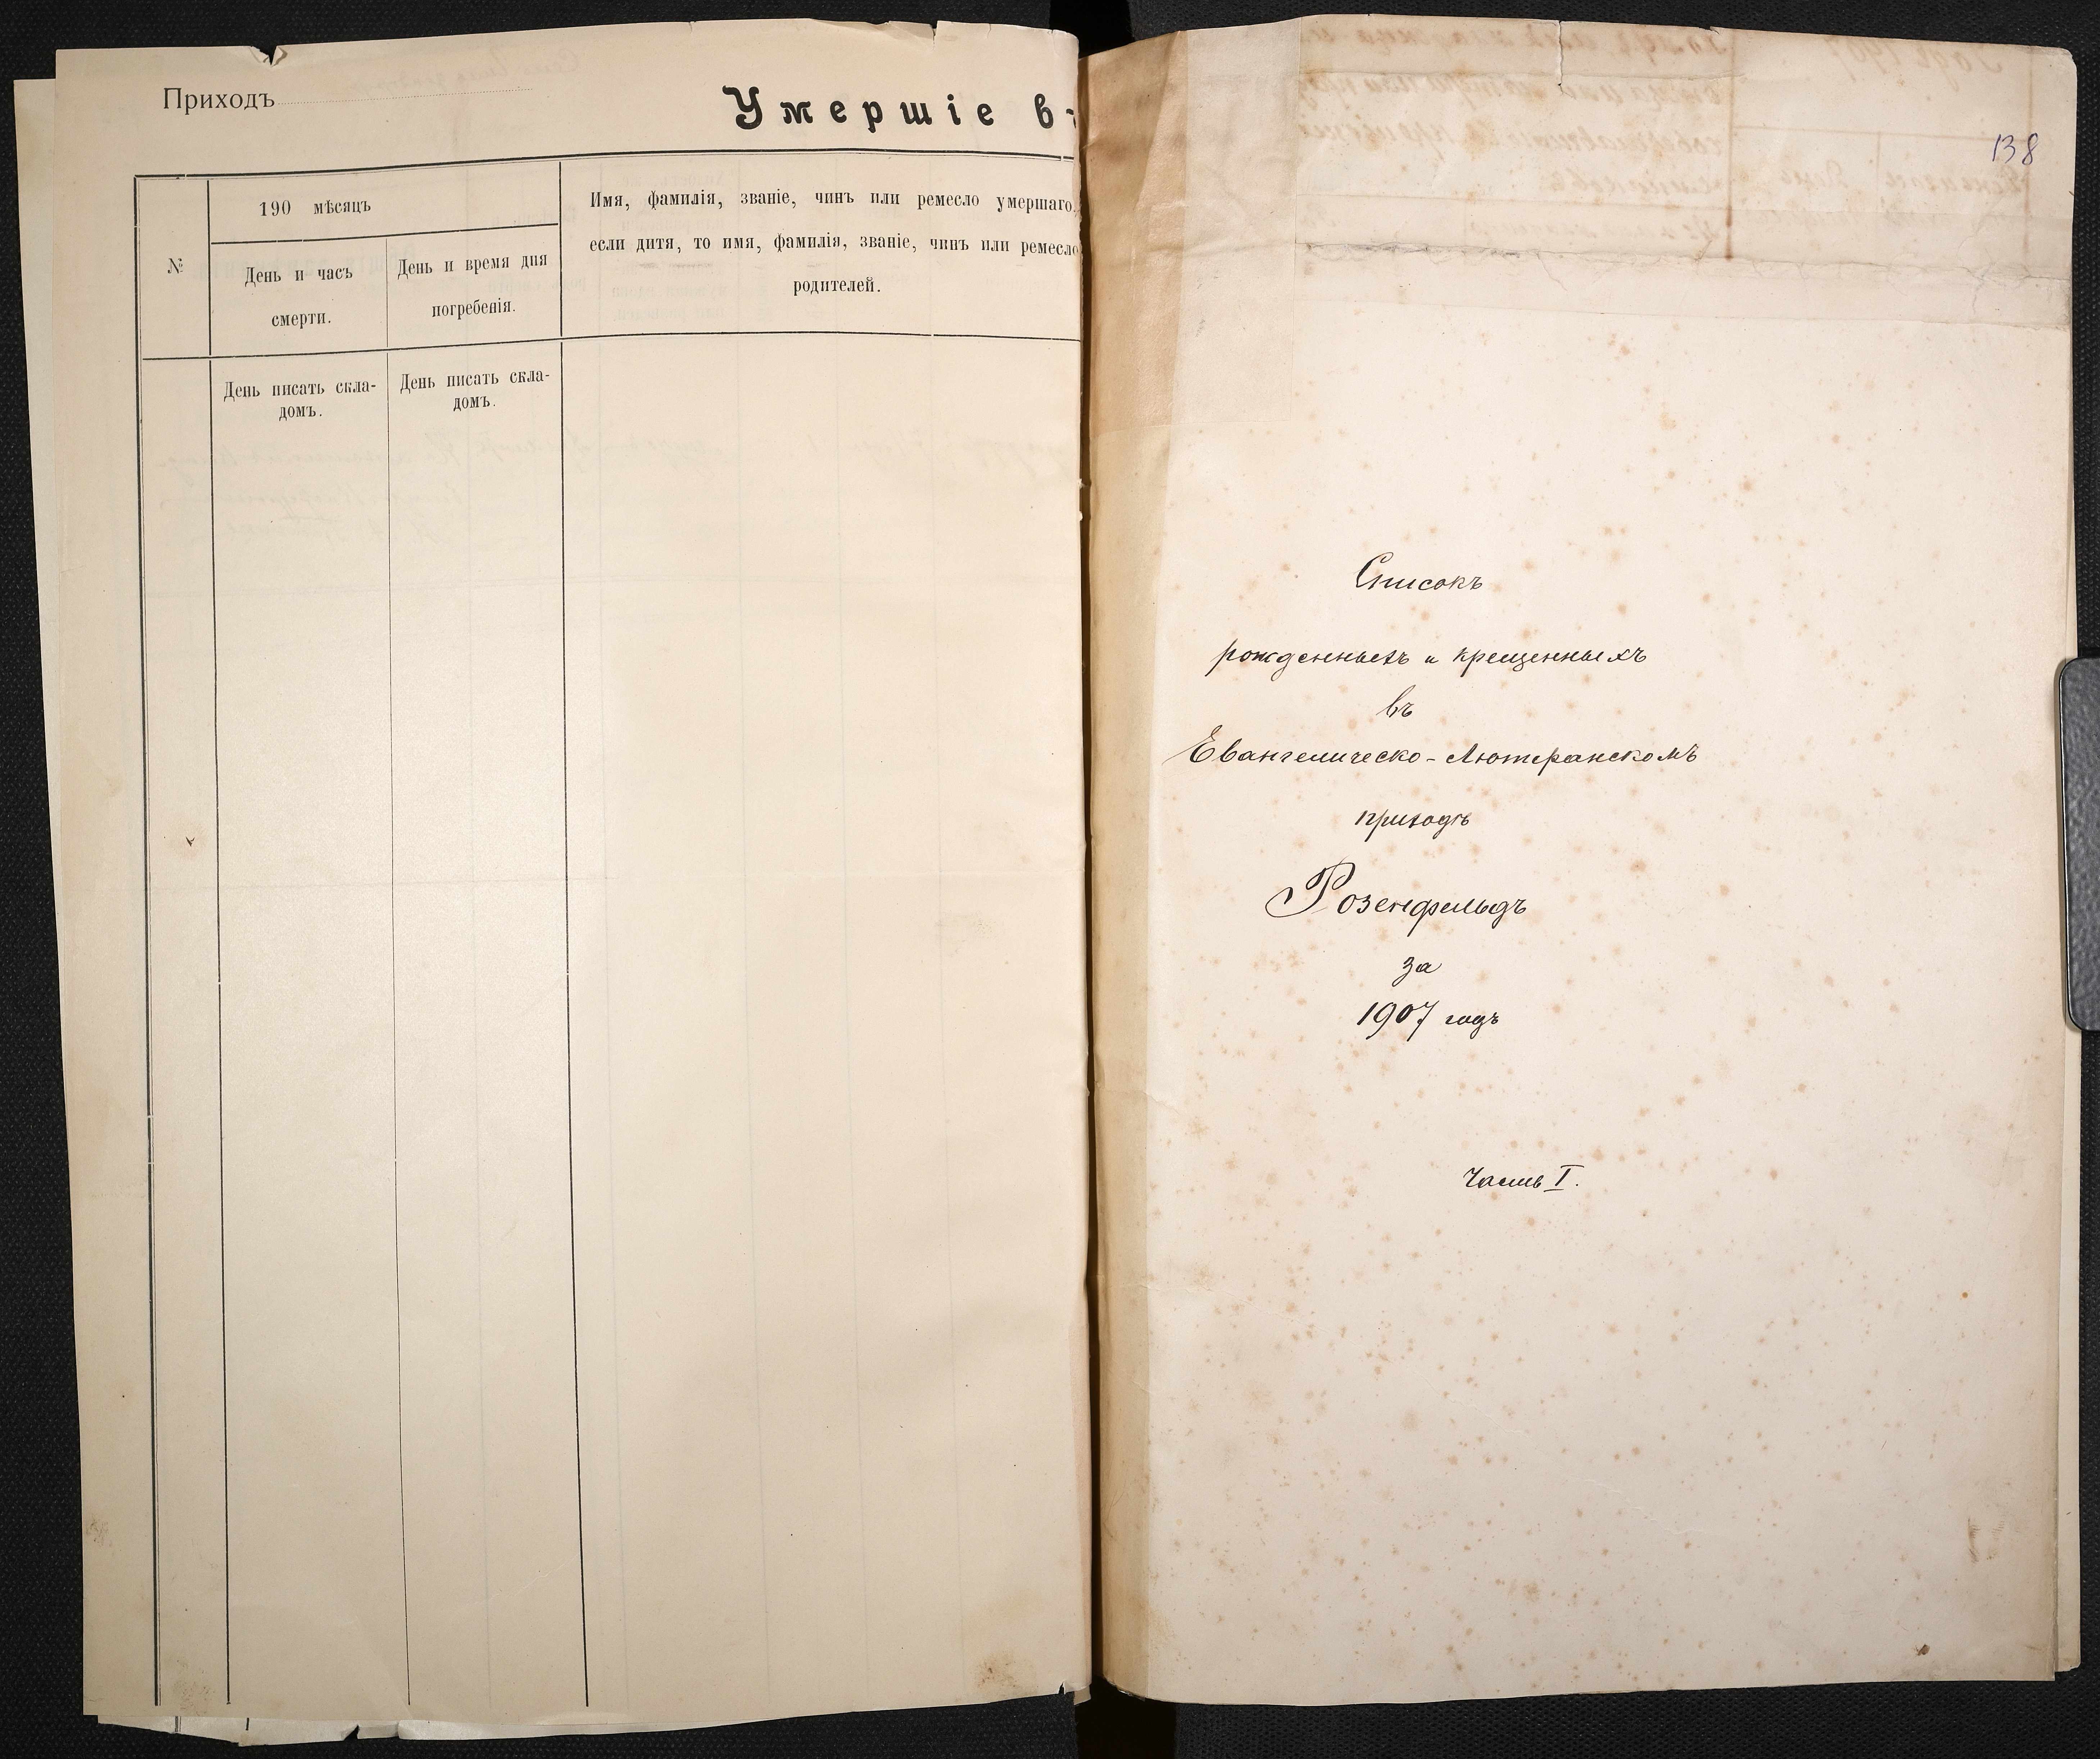 Приходъ
Умершіе въ
№
190 мѣсяцъ
День и часъ
смерти.
День и время дня
погребенія.
Имя, фамилія, званіе, чинъ или ремесло умершаго,
если дитя, то имя, фамилія, званіе, чинъ или ремесло
родителей.
День писать скла-
домъ.
День писать скла-
домъ.
138
Списокъ
рожденныхъ и крещенныхъ
въ
Евангелическо-Лютеранскомъ
приходѣ
Розенфельдъ
за
1907 годъ
Часть I.